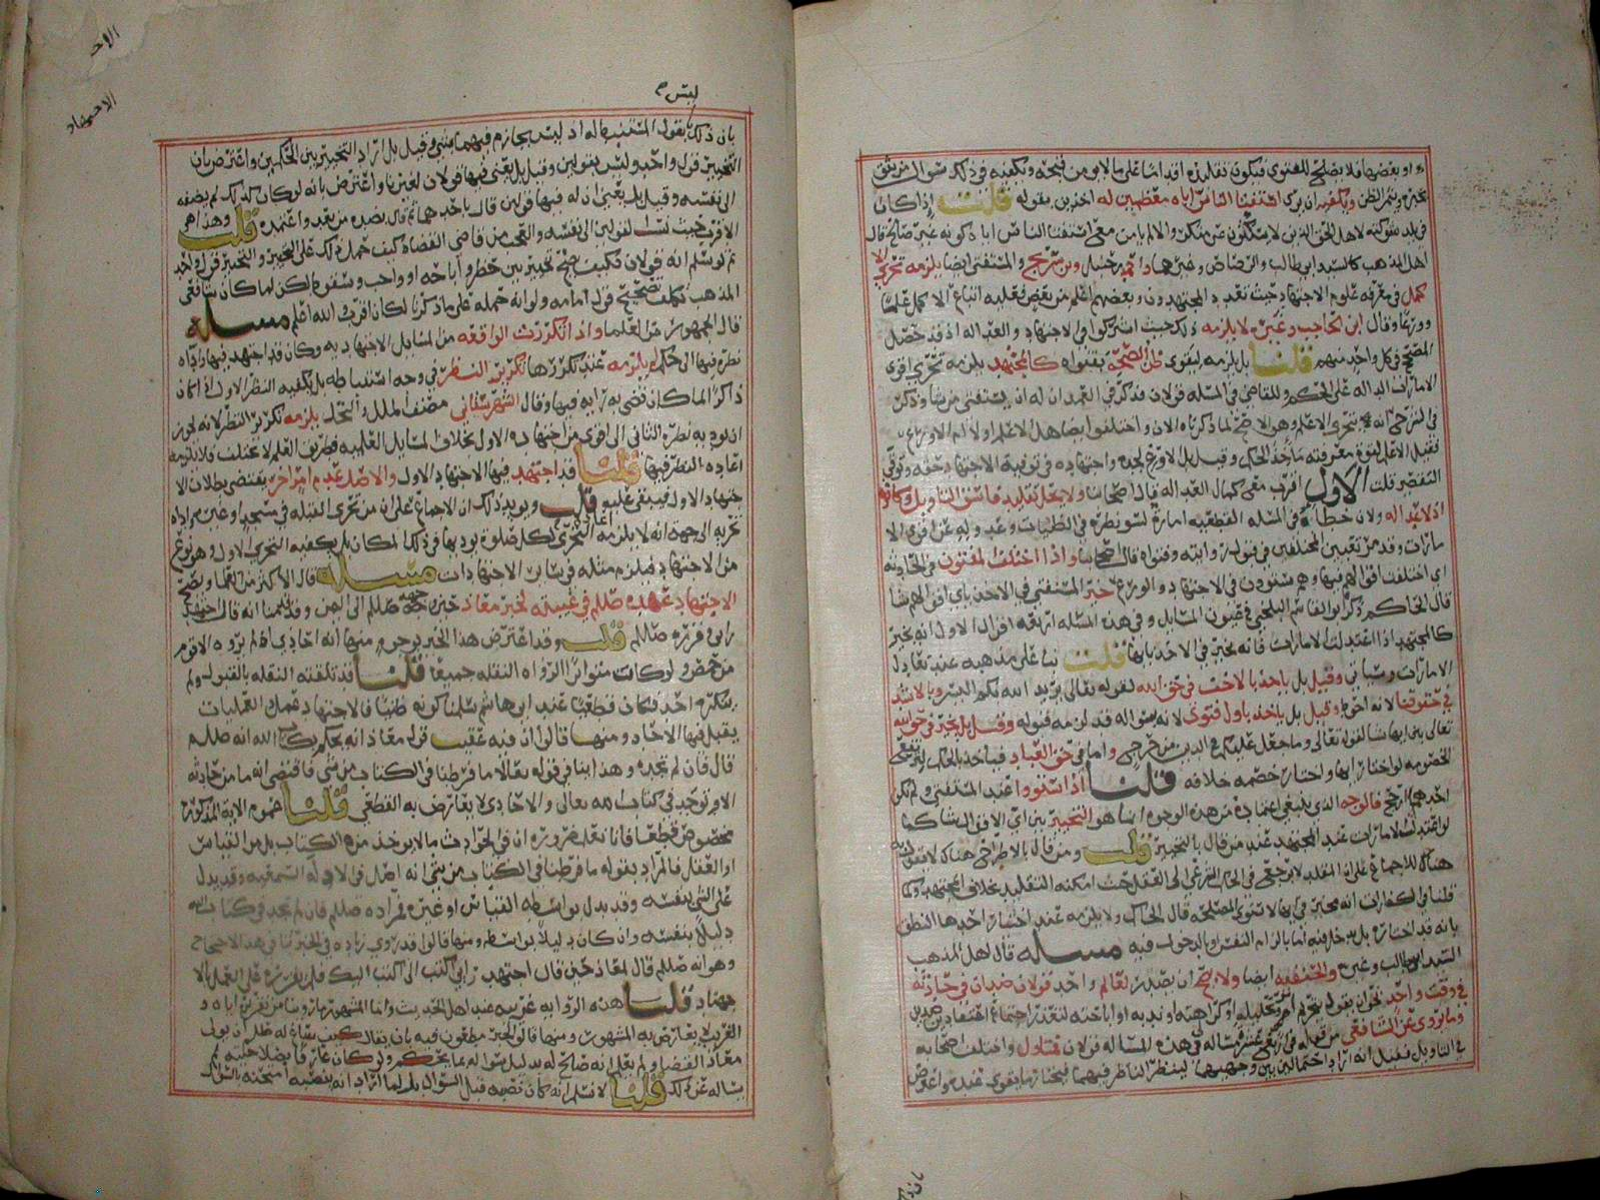 او بعضها فلا يصلح للفتوى فيكون تقليده اقداما على ما لا يؤمن قبحه ويكفيه في ذلك سؤال من يثق
بخبره ويثمر الظن ويكفيه ان يرى استفتا الناس اياه معظمين له اخذين بقوله قلت إذا كان
في بلد شوكته لاهل الحق الذين لا يسكتون عن منكر والا لم يامن معنى استفتا الناس اياه كونه غير صالح قال
اهل المذهب كالسيد ابي طالب والرصاص وغيرهما واحمد بن حنبل وبن سريج والمستفتي ايضا يلزمه تحري الا
كمل في معرفة علوم الاجتهاد حيث تعدد المجتهدون وبعضهم اعلم من بعض فعليه اتباع الاكمل علما
وورعا وقال ابن الحاجب وغيره لا يلزمه ذلك حيث اشتركوا في الاجتهاد والعدالة اذ قد حصل
المصحح في كل واحد منهم قلنا بل يلزمه ليقوى ظن الصحة بفتواه كالمجتهد يلزمه تحري اقوى
الامارات الدالة على الحكم وللقاضي في المسئلة قولان فذكر في العمد ان له ان يستفتي من شا وذكر
في الشرح انه يتحرى الاعلم وهو الاصح لما ذكرناه الان واختلفوا ايضا هل الاعلم اولا ام الاورع
فقيل الاعلم لقوة معرفته ماخذ الحكم وقيل بل الاورع لجده واجتهاده في توفية الاجتهاد حقه وتوقي
التقصير قلت الاول اقرب مع كمال العدالة قال اصحابنا ولا يحل تقليد فاسق التاويل وكافره
اذ لا عدالة له ولان خطاه في المسئلة القطعية امارة لسو نظره في الظنيات وعدوله عن اقوى الا
مارات وقد مر تعيين المختلفين في قبول روايته وفتواه قال اصحابنا واذا اختلف المفتون في الحادثة
اي اختلفت اقوالهم فيها وهم مستوون في الاجتهاد والورع خير المستفتي في الاخذ باي اقوالهم شا
قال الحاكم ذكر ابو القاسم البلخي في عيون المسايل وفي هذه المسئلة اربعة اقوال الاول انه يخير
كالمجتهد اذا اعتدلت الامارات فانه يخير في الاخذ بايها قلت بنا على مذهبه عند تعادل
الامارات وسياتي وقيل بل ياخذ بالاخف في حق الله لقوله تعالى يريد الله بكم اليسر وبالاشد
في حقوقنا لانه احوط وقيل بل ياخذ باول فتوى لانه بسواله قد لزمه قبوله وقيل بل يخير في حق الله
تعالى بين ايها شا لقوله تعالى وما جعل عليكم في الدين من حرج واما في حق العباد فياخذ بالحكم ليرتفع
الخصومة لو اختار ايها واختار خصمه خلافه قلنا اذا استووا عند المستفتي ولم يكن
احدهما ارجح فالوجه الذي ينبغي اعتماده من هذه الوجوه انما هو التخيير بين اي الاقوال شا كما
لو اعتدلت الامارات عند المجتهد عند من قال بالتخيير قلت ومن قال بالاطراح هناك لا يقوله
هنا للاجماع على ان المقلد لا يرجع في الحكم الشرعي الى العقل حيث امكنه التقليد بخلاف المجتهد وكما
قلنا في الكفارات انه مخير في ايها لاستوى المصلحة قال الحاكم ولا يلزمه عند اختيار احدها النطق
بانه قد اختاره بل يدخل فيه اما بالزام النفس او بالدخول فيه مسئلة قال اهل المذهب
السيد ابو طالب وغيره والحنفية ايضا ولا يصح ان يصدر لعالم واحد قولان ضدان في حادثة
في وقت واحد نحو ان يقول بتحريم امر وتحليله او كراهته وندبه او اباحته لتعذر اجتماع اعتقاد ضدين
وما يروى عن الشافعي من قوله في اربع عشرة مسالة في هذه المسالة قولان فمتاول واختلف اصحابه
في التاويل فقيل انه اراد احتمالين بين وجهيهما لينظر الناظر فيهما فيختار ما يقوى عنده واعترض
ليس م
بان ذلك يقوله المستنبط له اذ ليس بجازم فيهما بشي وقيل بل اراد التخيير بين الحكمين واعترض بان
التخيير قول واحد وليس بقولين وقيل بل يعني فيها قولان لغيرنا واعترض بانه لو كان كذلك لم يضفه
الى نفسه وقيل بل يعني ان له فيها قولين قال باحدهما ثم قال بضده من بعد واعتمده قلت وهذا هو
الاقرب حيث نسب القولين الى نفسه والعجب من قاضي القضاة كيف حمل ذلك على التخيير والتخيير قول واحد
ثم لو سلم انه قولان فكيف يصح تخيير بين حظر واباحة او واجب وسقوطه لكن لما كان شافعي
المذهب تكلف تصحيح قول امامه ولو انه حمله على ما ذكرنا لكان اقرب الله اعلم مسئلة
قال الجمهور من العلما واذا تكررت الواقعة من مسايل الاجتهادية وكان قد اجتهد فيها واداه
نظره فيها الى حكم لم يلزمه عند تكررها تكرير النظر في وجه استنباطه بل يكفيه النظر الاول اذا كان
ذاكرا لما كان قضى به رايه فيها وقال الشهرستاني مصنف الملل والنحل يلزمه تكرير النظر لانه يجوز
ان يوديه نظره الثاني الى اقوى من اجتهاده الاول بخلاف المسايل العلمية فطريق العلم لا يختلف فلا يلزمه
اعادة النظر فيها قلنا قد اجتهد فيها الاجتهاد الاول والاصل عدم امر اخر يقتضي بطلان الا
جتهاد الاول فيبقى عليه قلت ويويد ذلك ان الاجماع على ان من تحرى القبلة في مسجد او غيره فاداه
تحريه الى جهة انه لا يلزمه اعادة التحري لكل صلوة يوديها في ذلك المكان بل يكفيه التحري الاول وهو نوع
من الاجتهاد فيلزم مثله في ساير الاجتهادات مسئلة قال الاكثر من العلما ويصح
الاجتهاد في عهده صللم في غيبته لخبر معاذ حين وجهه صللم الى اليمن وقد قدمنا انه قال اجتهد
رايي وقرره صللم قلت وقد اعترض هذا الخبر بوجوه منها انه احادي اذ لم يروه الا قوم
من حمص ولو كان متواترا لرواه النقلة جميعا قلنا قد تلقته النقلة بالقبول ولم
ينكره احد فكان قطعيا عند ابي هاشم سلمنا كونه ظنيا فالاجتهاد عمل والعمليات
يقبل فيها الاحاد ومنها قالوا ان فيه عقيب قول معاذ انه يحكم بكتاب الله انه صللم
قال فان لم تجده وهذا ينافي قوله تعالى ما فرطنا في الكتاب من شي فاقتضى انه ما من حادثة
الا وتوجد في كتاب الله تعالى والاحادي لا يعارض به القطعي قلنا عموم الاية المذكورة
مخصوص قطعا فانا نعلم ضرورة ان في الحوادث ما لا يوخذ من الكتاب بل من القياس
او العقل فالمراد بقوله ما فرطنا في الكتاب من شي انه اصل في الادلة السمعية وقد يدل
على الشي بنفسه وقد يدل بواسطة القياس او غيره فمراده صللم فان لم تجد في كتاب الله
دليلا بنفسه وان كان دليلا بواسطة ومنها قالوا قد روي زيادة في الخبر تنافي هذا الاحتجاج
وهو انه صللم قال لمعاذ حين قال اجتهد رايي اكتب الي اكتب اليك فلم يقرره على العمل بالا
جتهاد قلنا هذه الرواية غريبة عند اهل الحديث وانما المشهور ما روينا من تقريره اياه و
الغريب لا يعارض به المشهور ومنها قالوا الخبر مطعون فيه بان يقال كيف يبقاه له صللم ان يولى
معاذ القضا ولم يعلم انه صالح له بدليل سواله بما يحكم ولو كان عارفا بصلاحيته لم
يساله عن ذلك قلنا لا نسلم انه كان نصبه قبل السوال بل لما اراد انه ينصبه امتحنه بالسوال
الاحـ
الاجتهاد